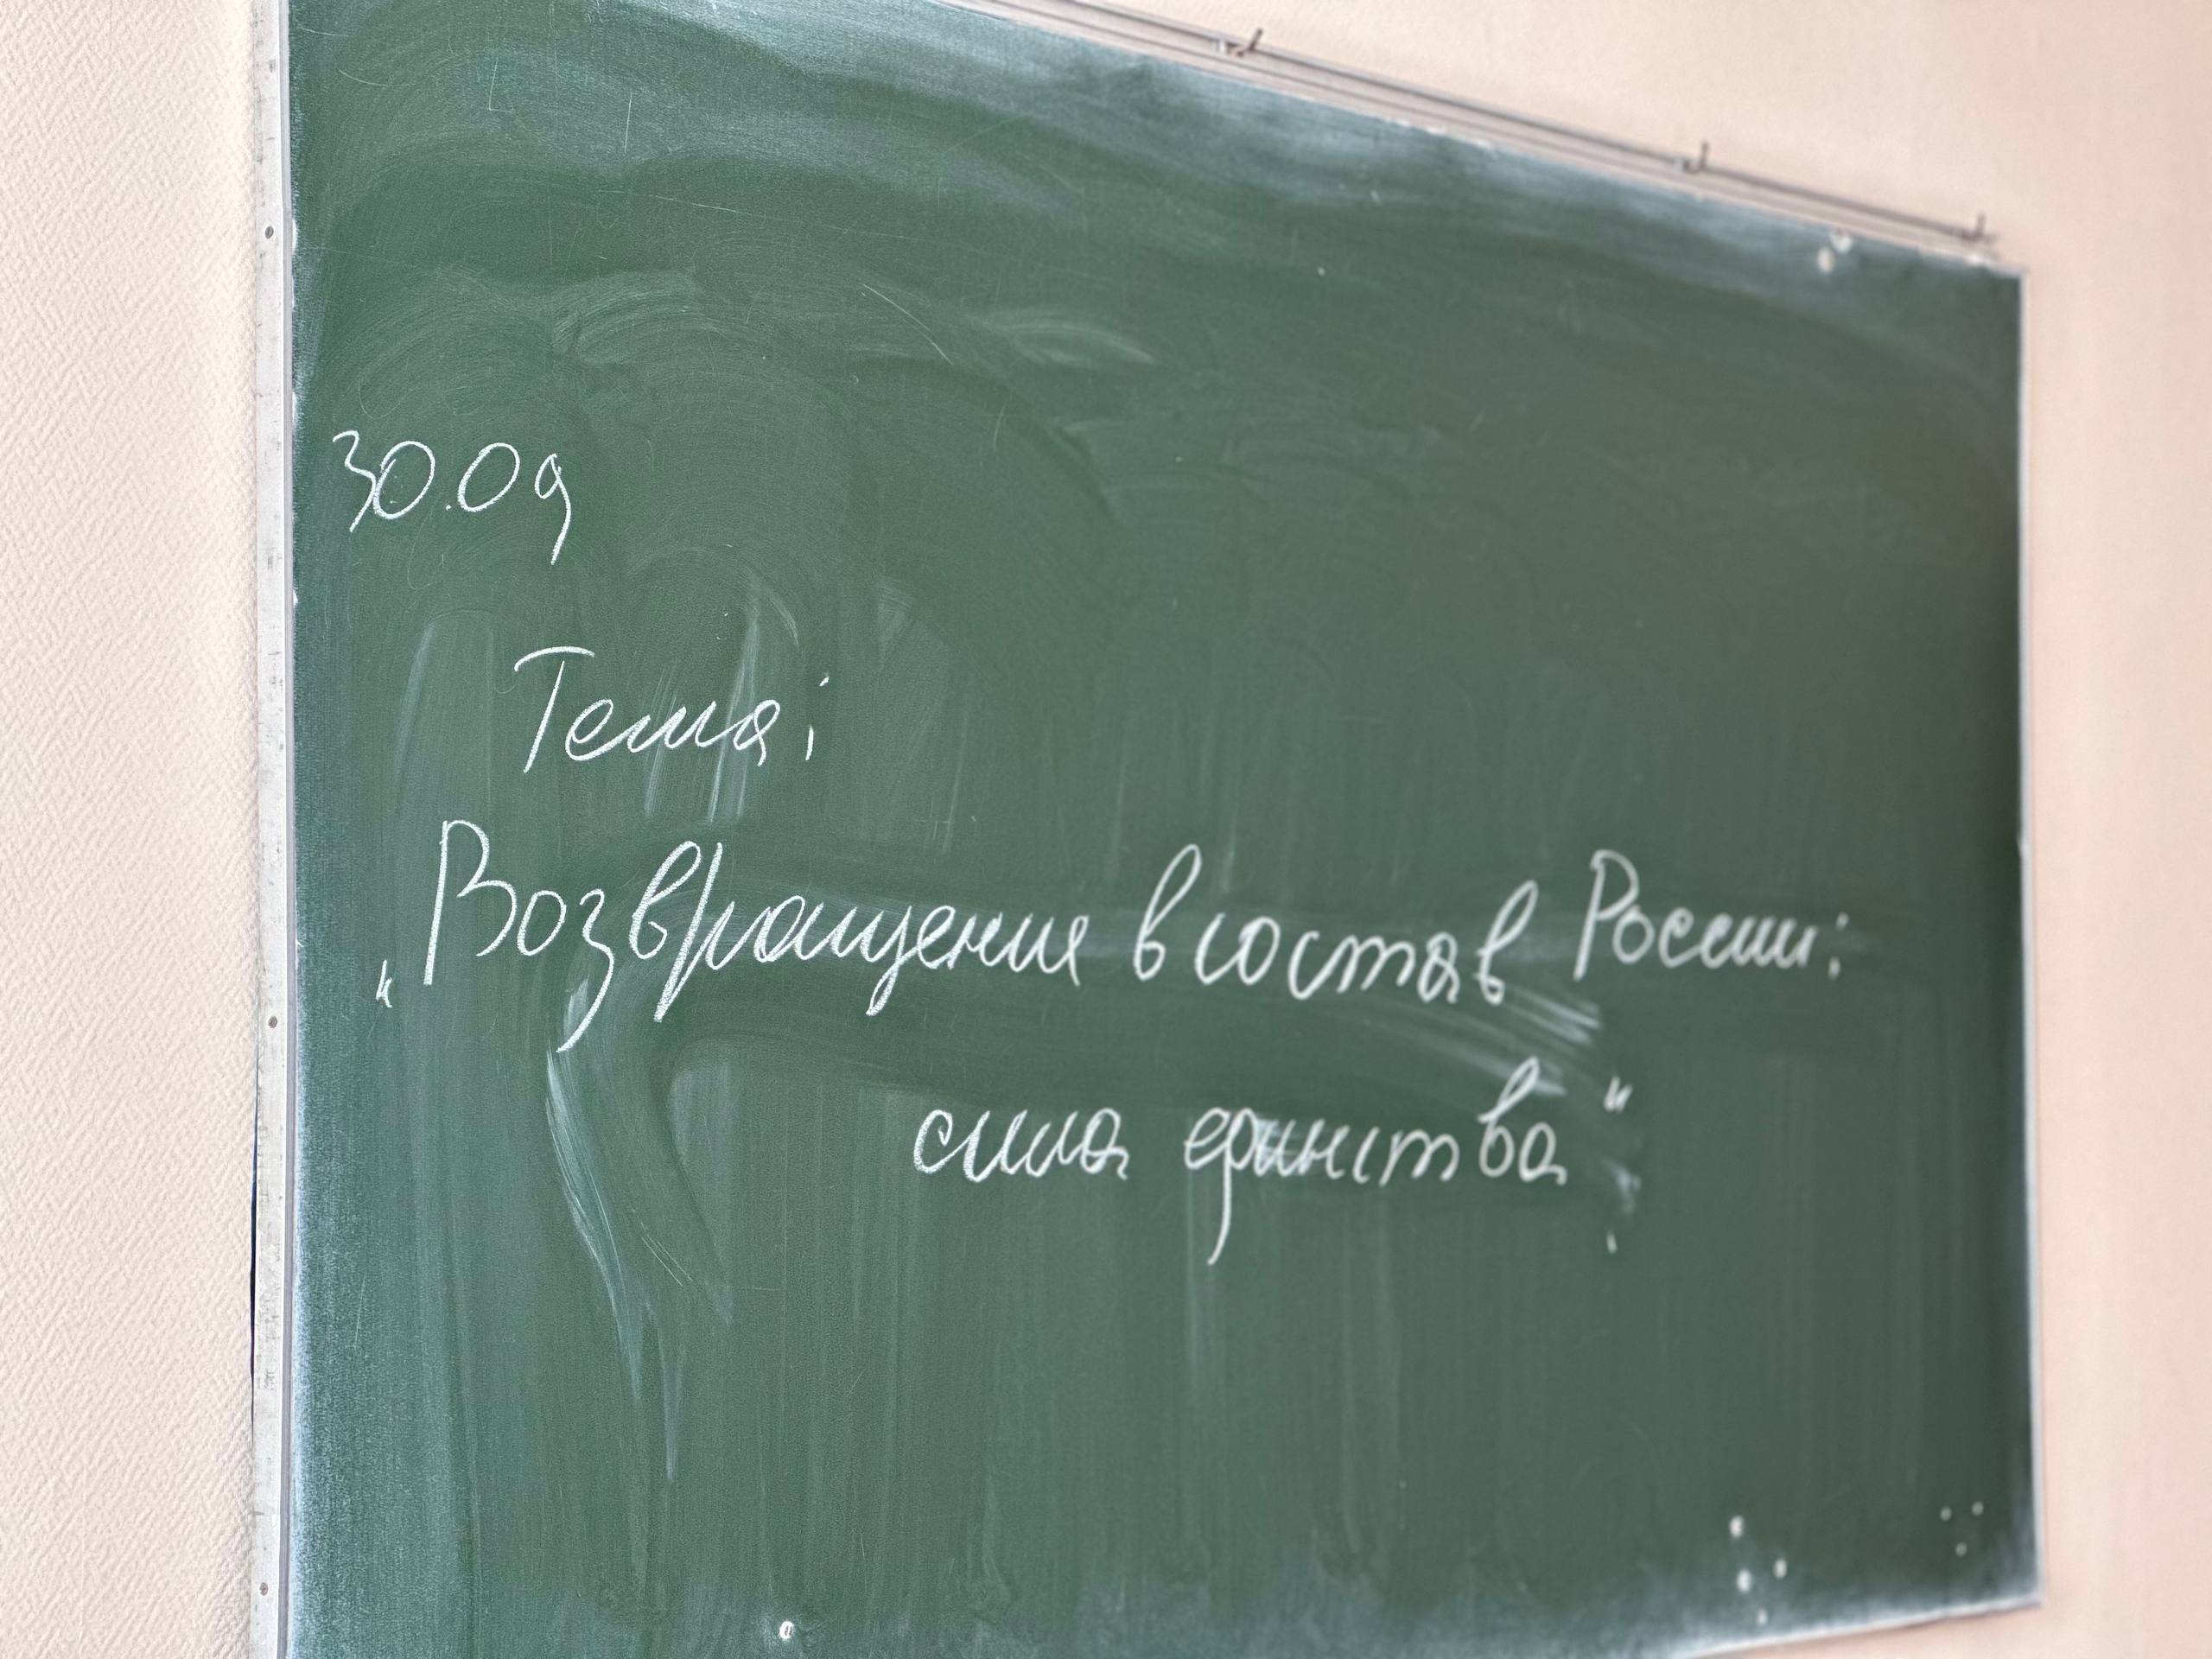 30.09
Тема:
„Возвращение в состав России:
сила единства“